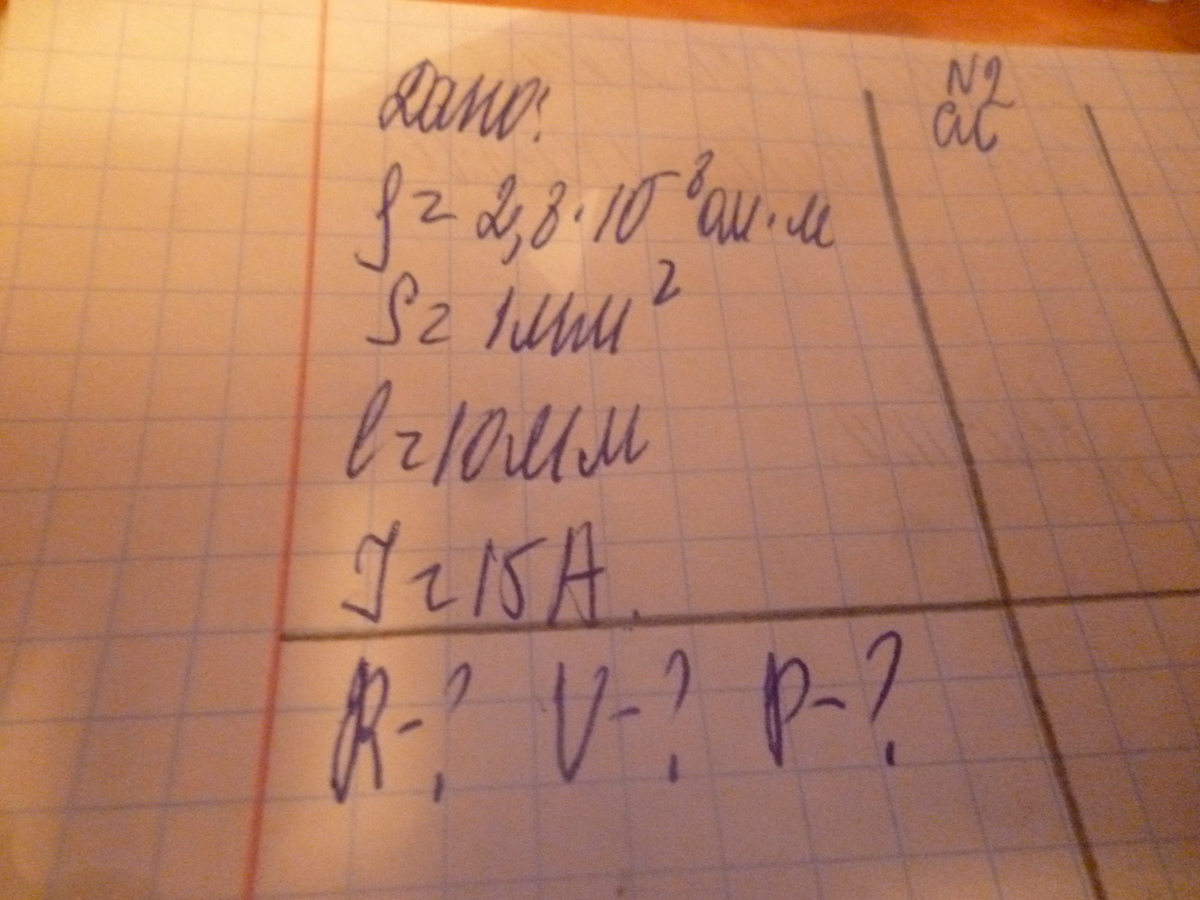 Дано:
ρ = 2,8·10⁻⁸ ом·м
S = 1мм²
l = 10мм
J = 15А.
R-? V-? P-?
N2
си